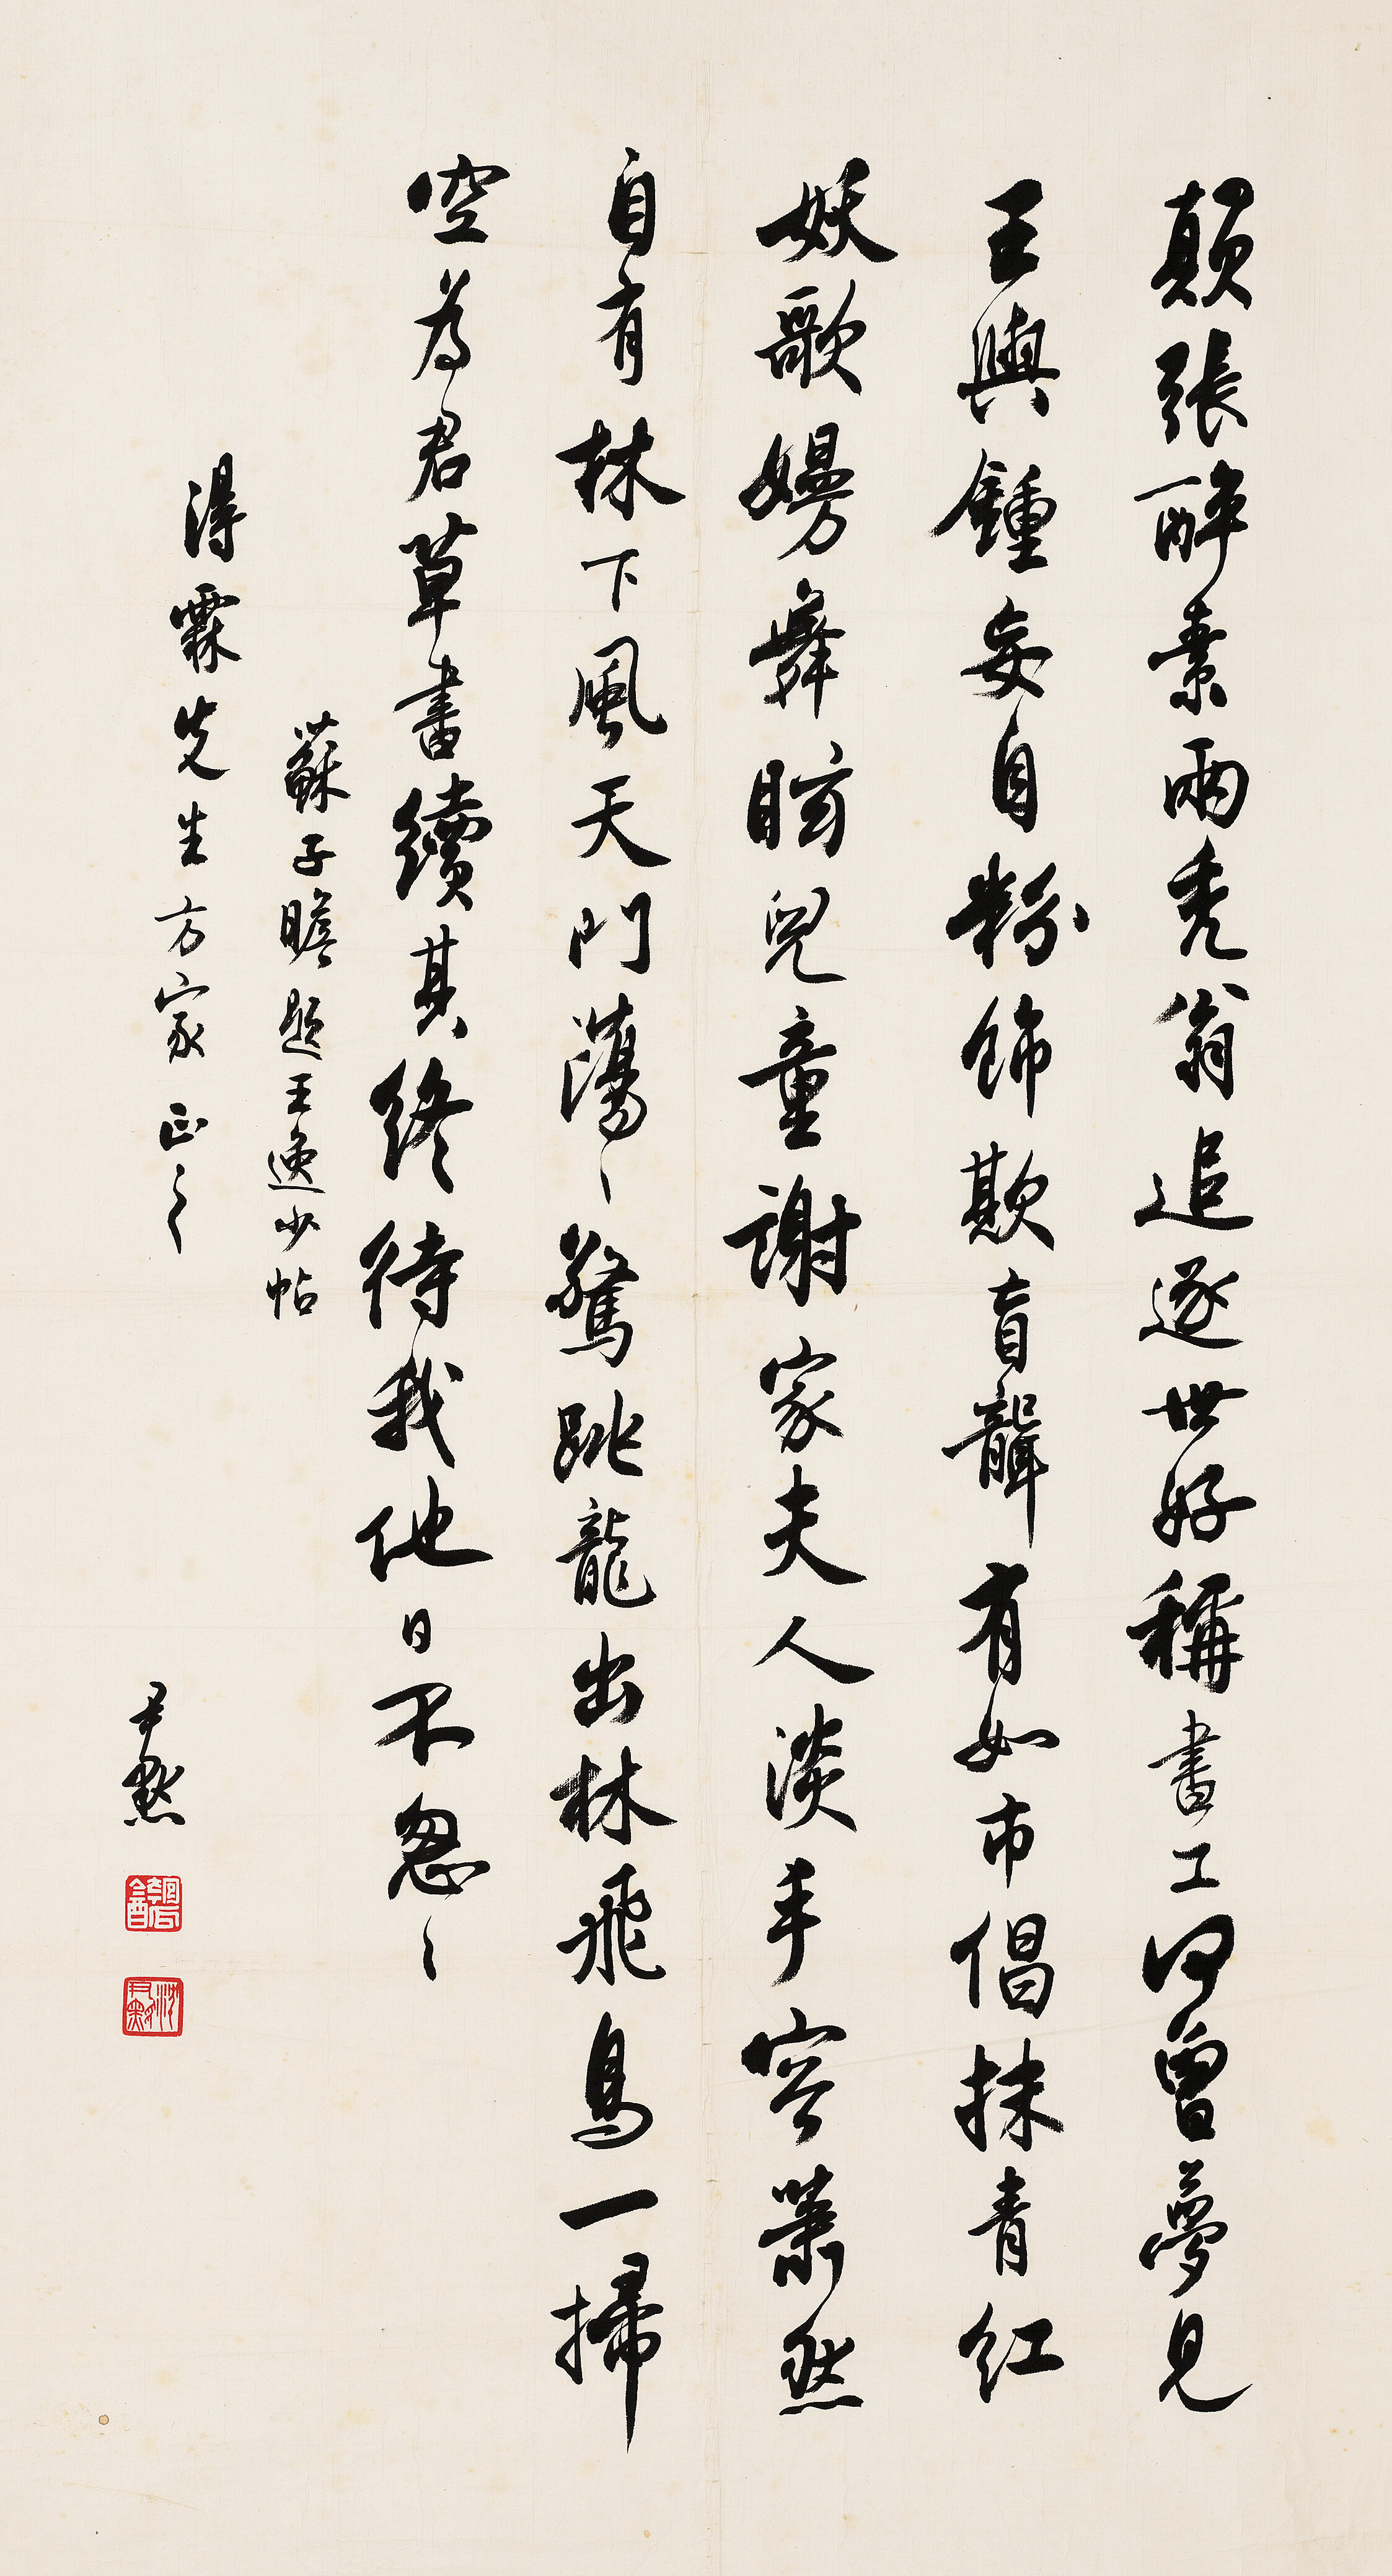 顛張醉素兩禿翁追逐世好稱書工何曾夢見
王與鍾妄自粉飾欺盲聾有如市倡抹青紅
妖歌嫚舞眩兒童謝家夫人淡丰容蕭然
自有林下風天門蕩〻驚跳龍出林飛鳥一掃
空為君草書續其終待我他日不怱〻
蘇子瞻題王逸少帖
得霖先生方家正之
尹默
沈尹默